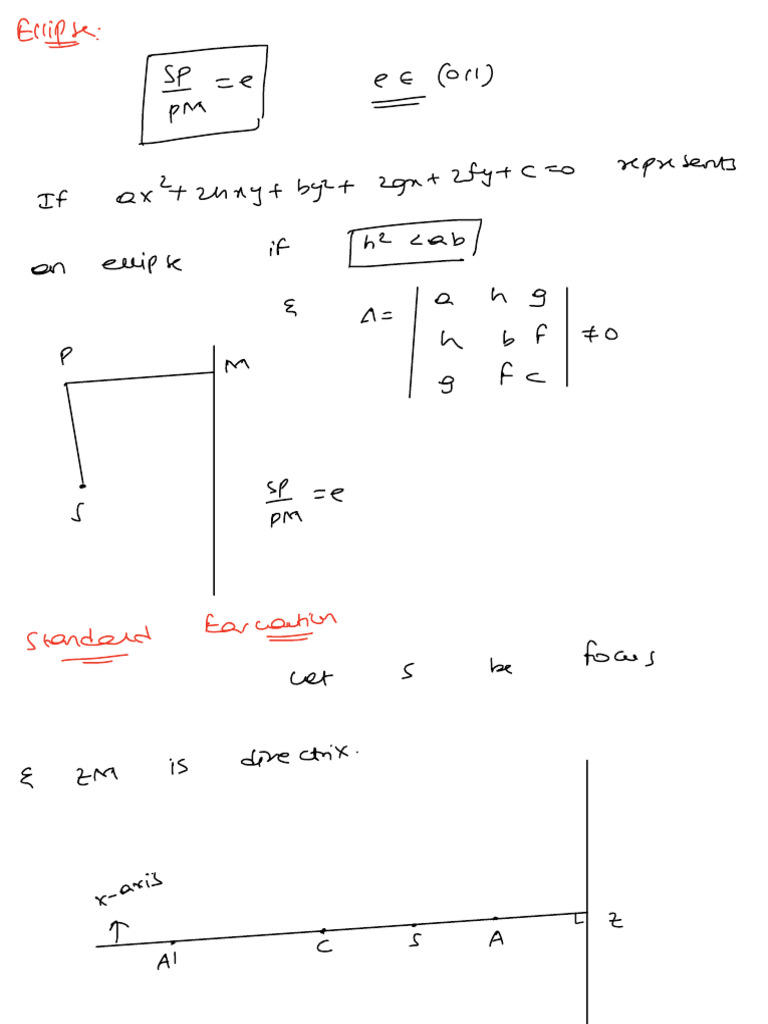 Ellipse:
SP/PM = e    e ∈ (0,1)
If ax²+2hxy+by²+2gx+2fy+c=0 represents
an ellipse if h² < ab
& Δ = | a h g |
| h b f | ≠ 0
| g f c |
P
M
S
SP/PM = e
Standard Equation
Let S be focus
& ZM is directrix.
x-axis
A' C S A Z